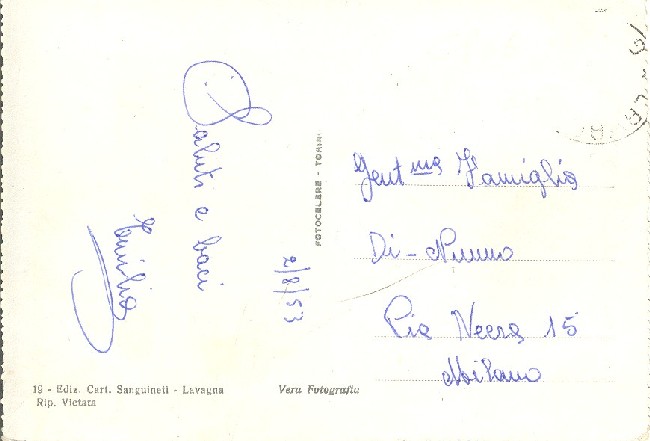 Saluti e baci
Emilio
2/8/53
FOTOCELERE - TORINO
Gent.ma Famiglia
Di-Nunno
Via Neera 15
Milano
19 - Ediz. Cart. Sanguineti - Lavagna
Rip. Vietata
Vera Fotografia